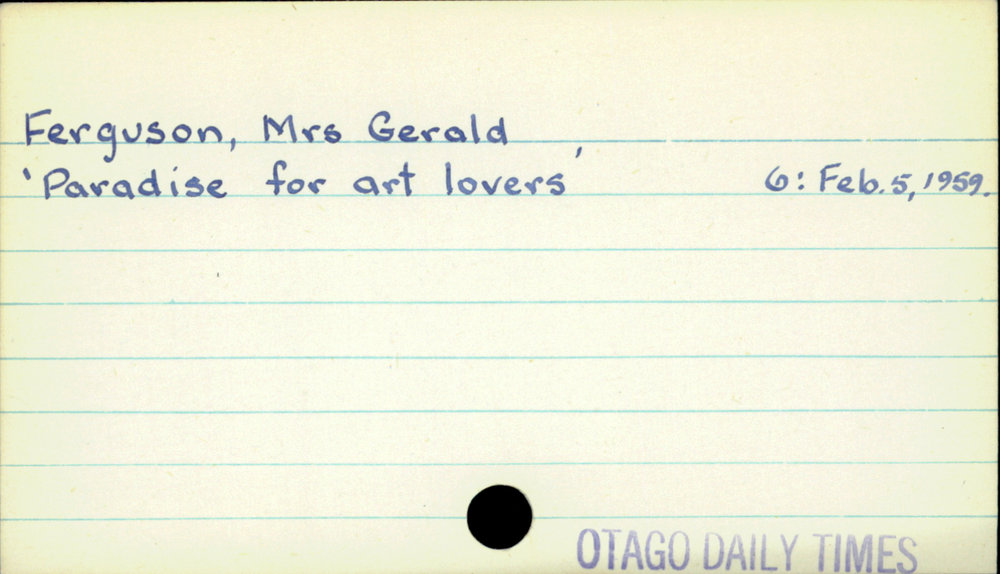 Ferguson, Mrs Gerald
'Paradise for art lovers' 6: Feb. 5, 1959.
OTAGO DAILY TIMES